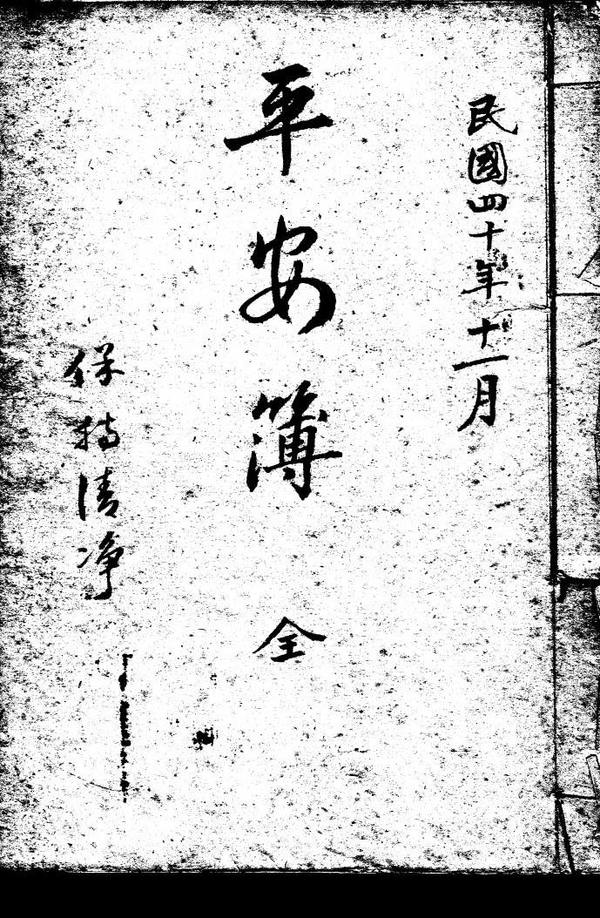 民國四十年十一月
平安簿 全
保持清净